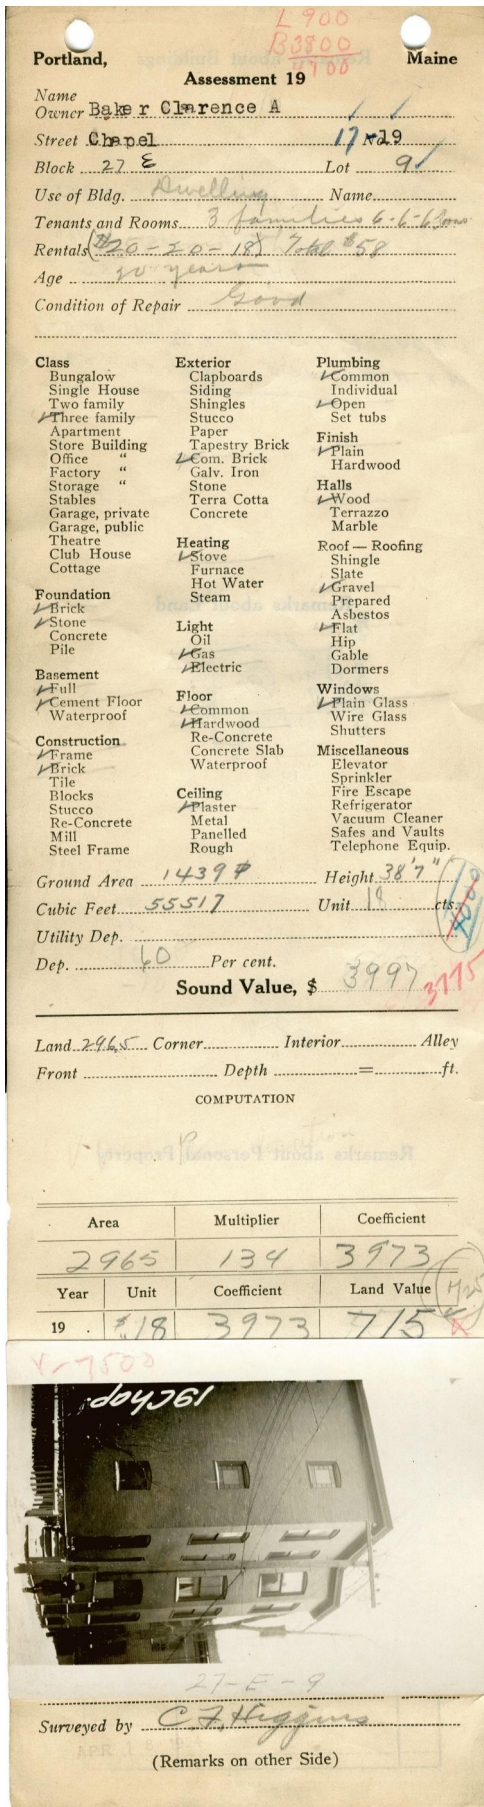 L 900
B 3800
4700
Portland, Maine
Assessment 19
Name
Owner Baker Clarence A
Street Chapel 17-19 No.
Block 27 E Lot 9
Use of Bldg. Dwelling Name
Tenants and Rooms 3 families 6-6-6 Rms
Rentals ($20-20-18) Total $58
Age years
Condition of Repair Good
Class
Bungalow
Single House
Two family
✓Three family
Apartment
Store Building
Office "
Factory "
Storage "
Stables
Garage, private
Garage, public
Theatre
Club House
Cottage
Foundation
✓Brick
✓Stone
Concrete
Pile
Basement
✓Full
✓Cement Floor
Waterproof
Construction
✓Frame
✓Brick
Tile
Blocks
Stucco
Re-Concrete
Mill
Steel Frame
Exterior
Clapboards
Siding
Shingles
Stucco
Paper
Tapestry Brick
✓Com. Brick
Galv. Iron
Stone
Terra Cotta
Concrete
Heating
✓Stove
Furnace
Hot Water
Steam
Light
Oil
✓Gas
✓Electric
Floor
✓Common
✓Hardwood
Re-Concrete
Concrete Slab
Waterproof
Ceiling
✓Plaster
Metal
Panelled
Rough
Plumbing
✓Common
Individual
✓Open
Set tubs
Finish
✓Plain
Hardwood
Halls
✓Wood
Terrazzo
Marble
Roof — Roofing
Shingle
Slate
✓Gravel
Prepared
Asbestos
✓Flat
Hip
Gable
Dormers
Windows
✓Plain Glass
Wire Glass
Shutters
Miscellaneous
Elevator
Sprinkler
Fire Escape
Refrigerator
Vacuum Cleaner
Safes and Vaults
Telephone Equip.
Ground Area 1439 Height 38'7"
Cubic Feet 55517 Unit 18 cts.
Utility Dep.
Dep. 60 Per cent.
Sound Value, $ 3997 3775
Land 2965 Corner Interior Alley
Front Depth = ft.
COMPUTATION
Area Multiplier Coefficient
2965 134 3973
Year Unit Coefficient Land Value
19 $.18 3973 715
V-7500
19 Chap.
27-E-9
Surveyed by C. F. Higgins
(Remarks on other Side)